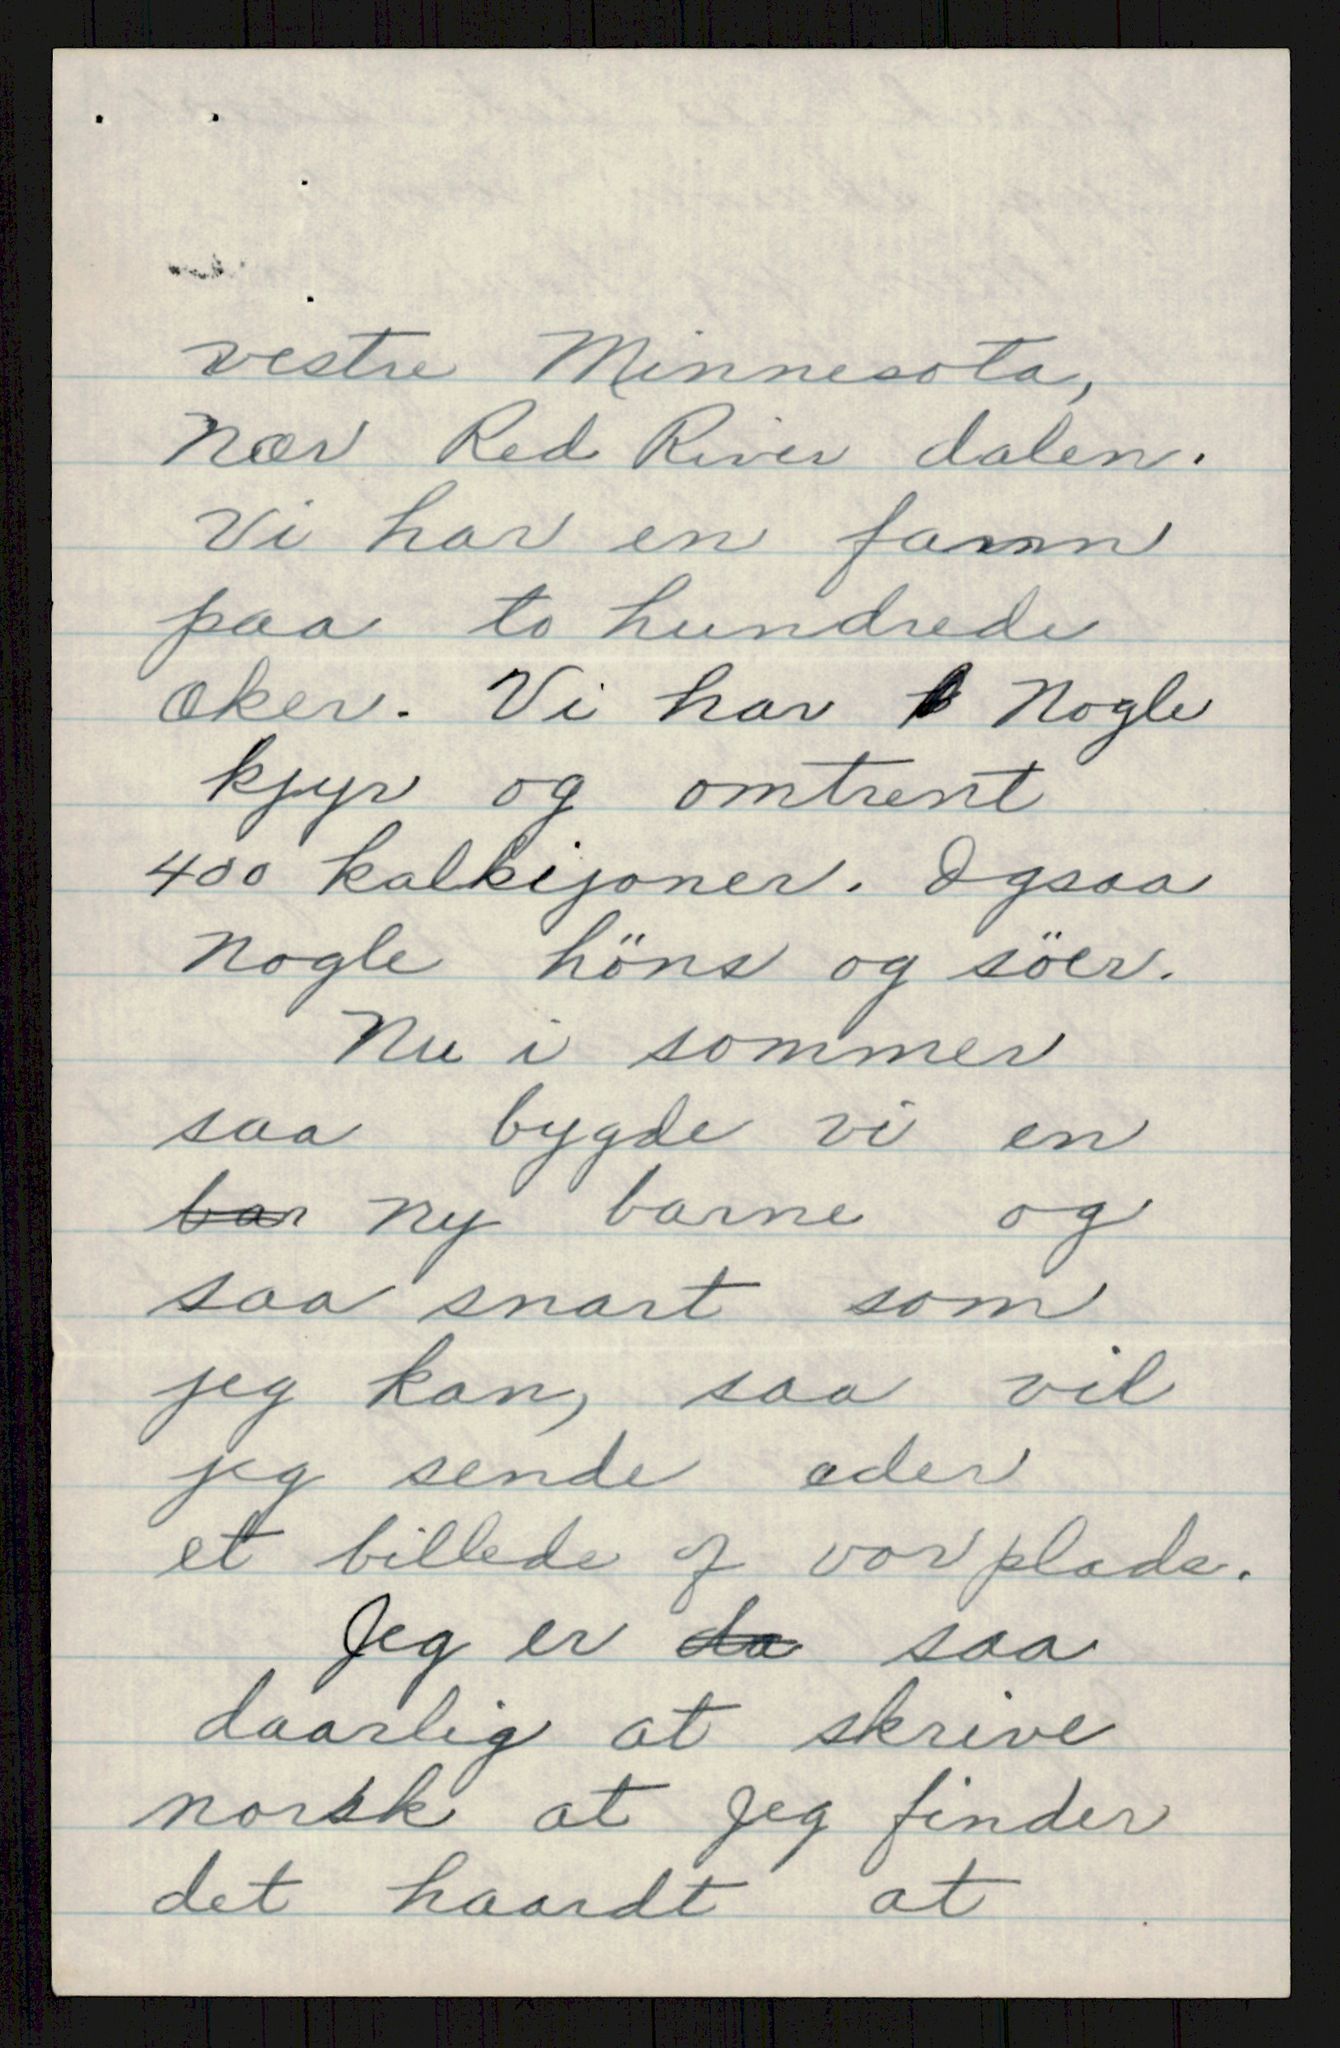 vestre Minnesota,
nær Red River dalen.
Vi har en farm
paa to hundrede
æker. Vi har Nogle
kjyr og omtrent
400 kalkijoner. Ogsaa
nogle höns og söer.
Nu i sommer
saa bygde vi en
bar ny barne og
saa snart som
jeg kan, saa vil
jeg sende eder
et billede af vor plads.
Jeg er da saa
daarlig at skrive
norsk at Jeg finder
det haardt at